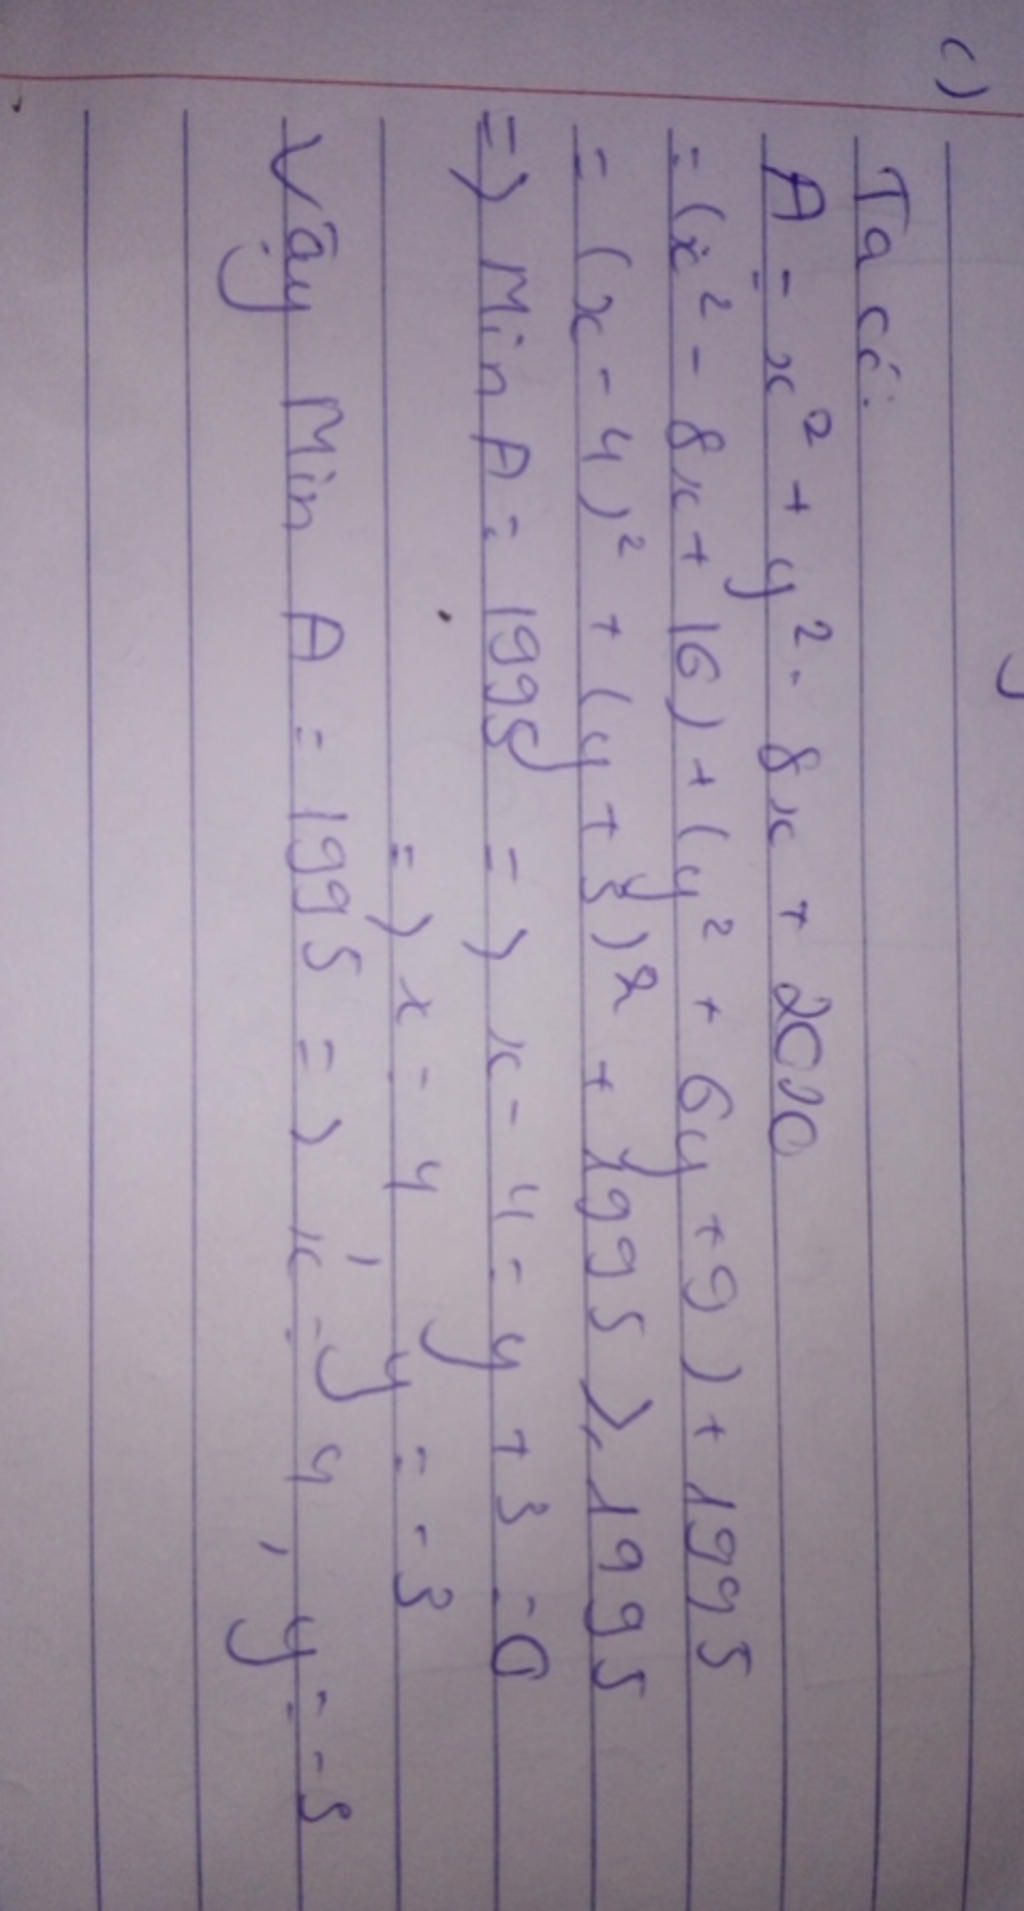 c)
Ta có:
A = x² + y² - 8x + 2010
= (x² - 8x + 16) + (y² + 6y + 9) + 1995
= (x - 4)² + (y + 3)² + 1995 ≥ 1995
=> Min A = 1995 => x - 4 = y + 3 = 0
=> x = 4 y = -3
Vậy Min A = 1995 => x = 4, y = -3